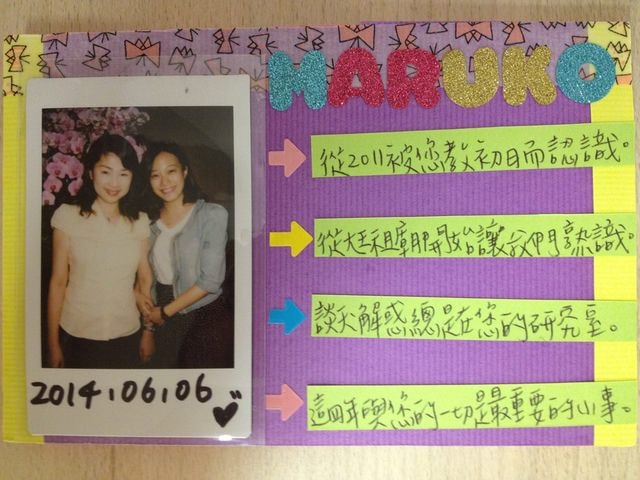 MARUKO
從2011被您教初日而認識。
從大王租群開始讓我們熟識。
談天解惑總是在您的研究室。
這四年與您的一切是最重要的小事。
2014.06.06